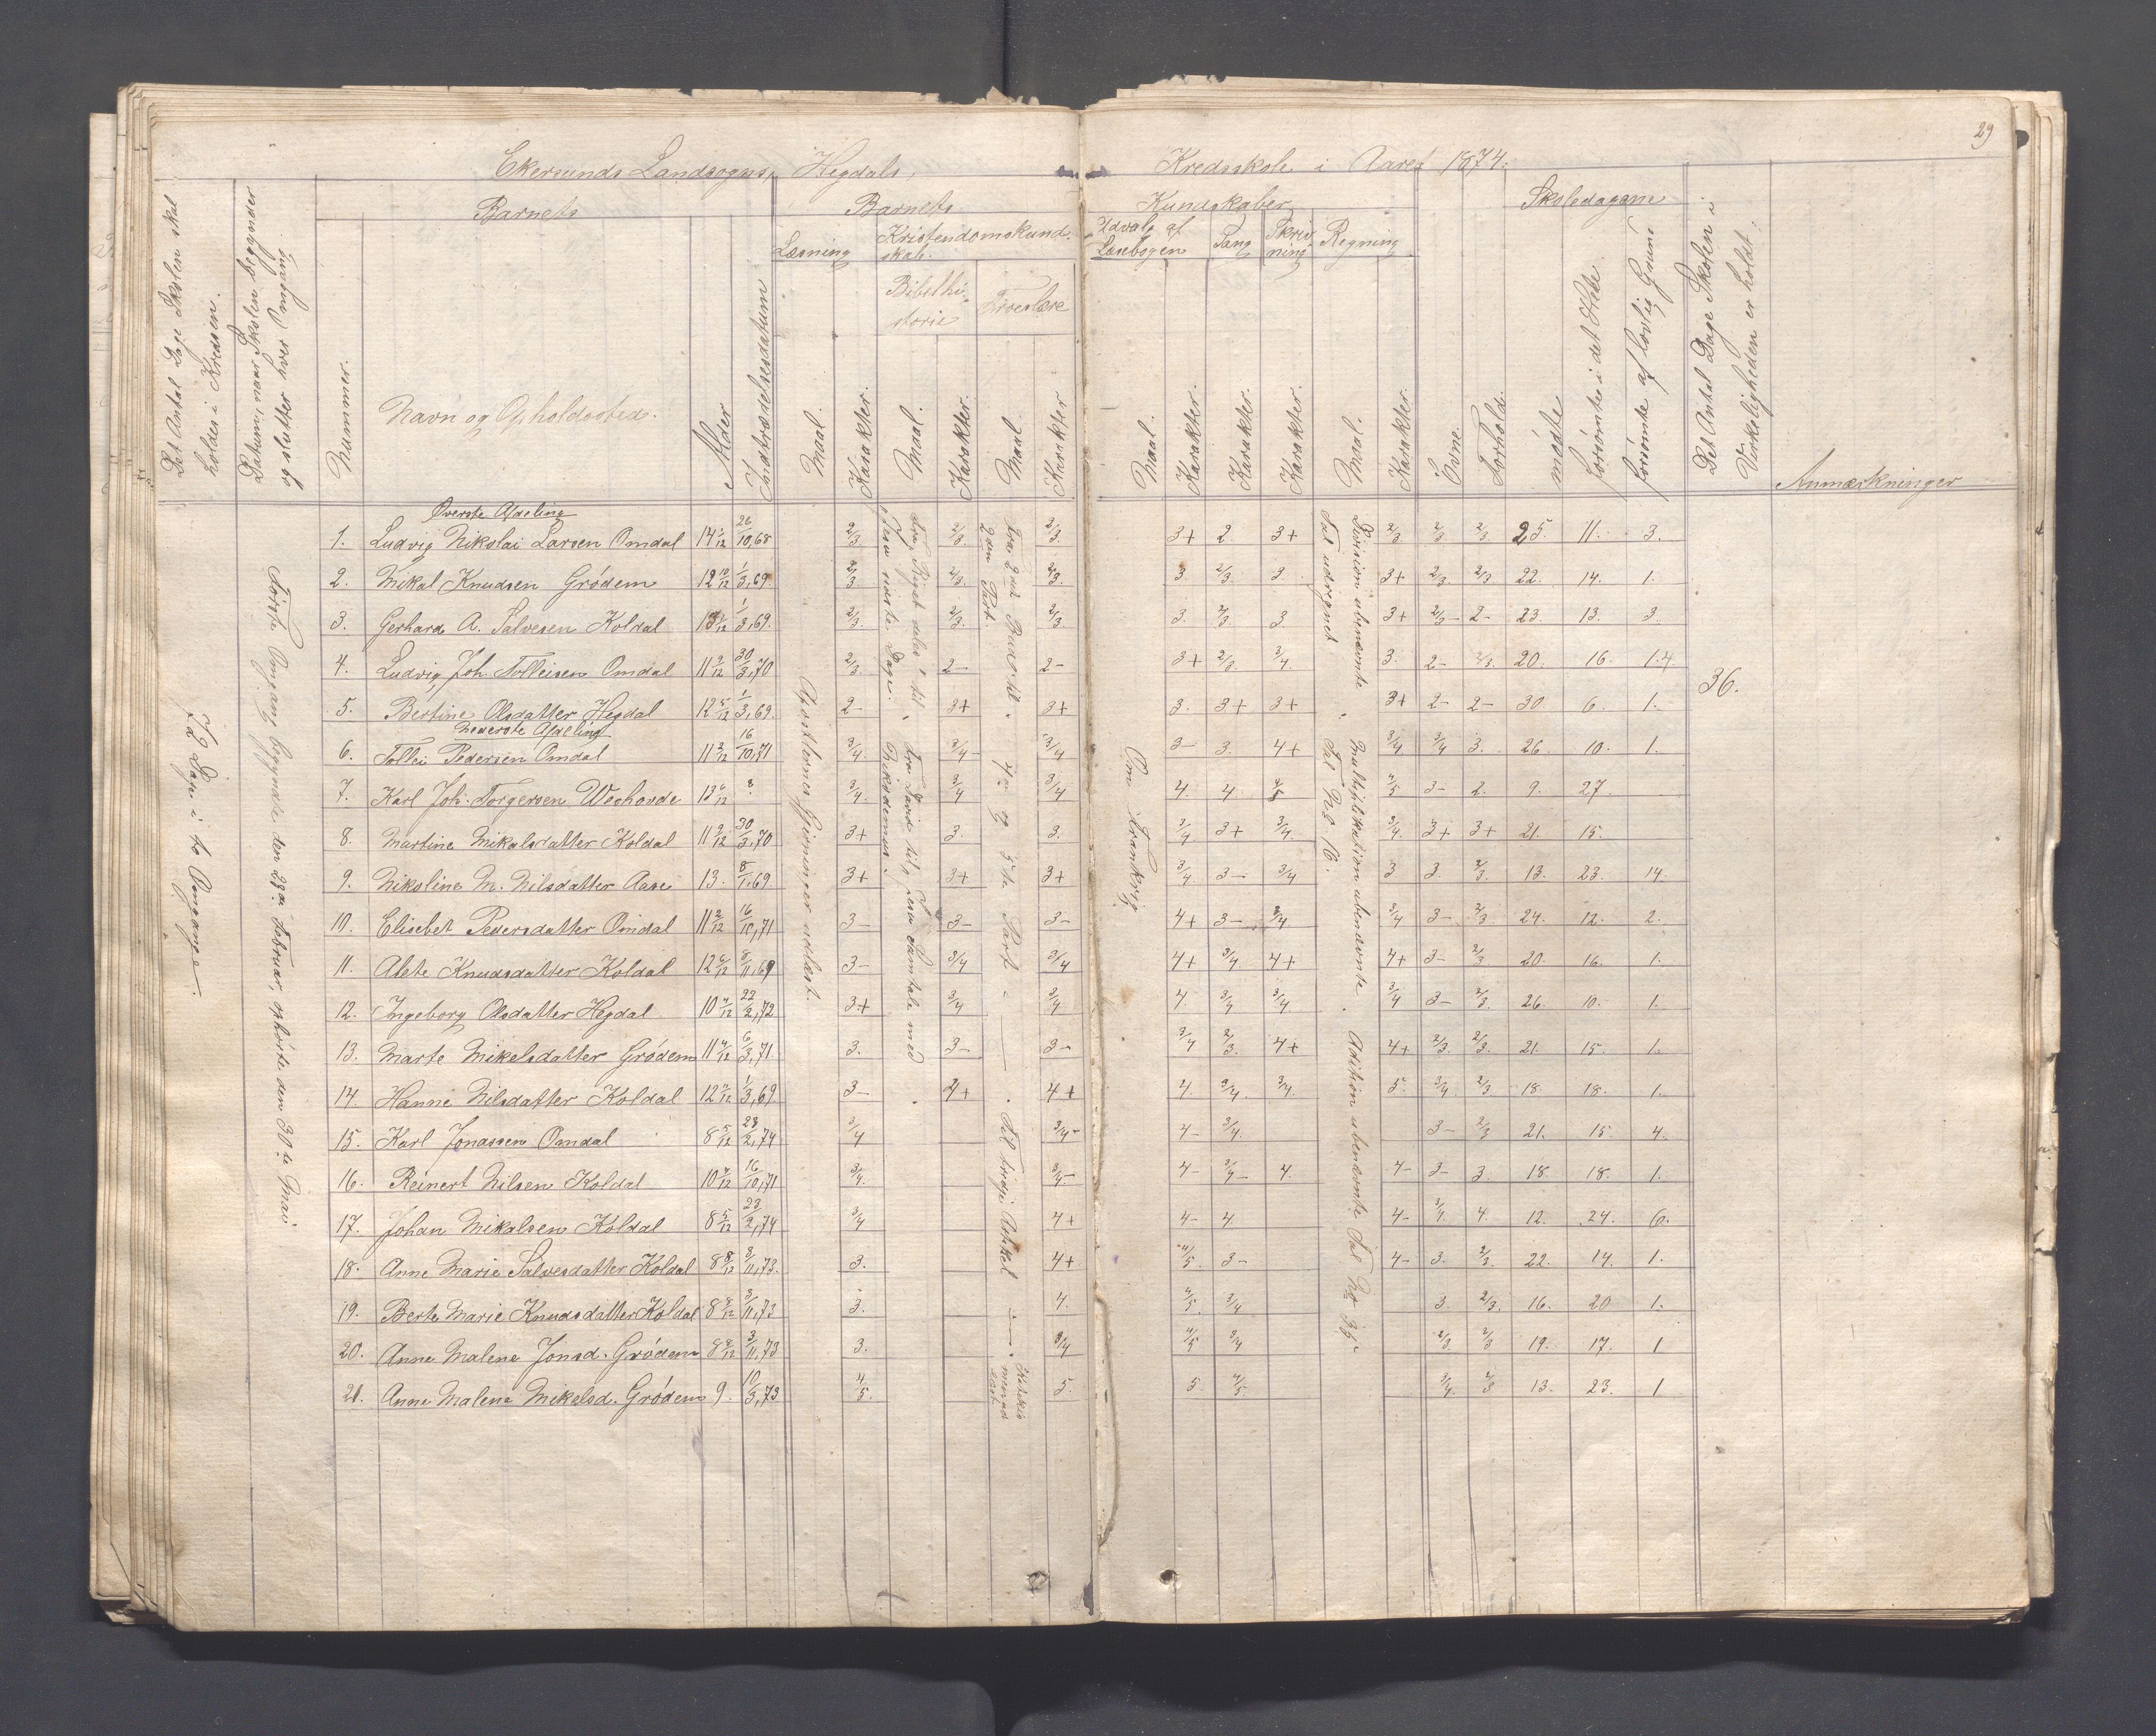 29
Ekersunds Landsogns, Hegdals, Kredsskole i Aaret 1874.
Det Antal Dage Skolen skal holdes i Kredsen.
Datum, naar Skolen begynder og slutter hver Omgang.
Barnets
Nummer.
Navn og Opholdssted.
Alder
Indtrædelsesdatum
Barnets Kundskaber
Læsning
Kristendomskundskab.
Bibelhistorie
Troeslære
Udvalg af Læsebogen
Sang
Skrivning
Regning
Maal. Karakter. Maal. Karakter. Maal. Karakter
Maal. Karakter. Karakter. Karakter. Maal. Karakter.
Evne.
Forhold.
Skoledagene
mødte
forsømte i det Hele
forsømte af lovlig Grund
Det Antal Dage Skolen i Virkeligheden er holdt.
Anmærkninger
72 Dage i to Omgange.
Første Omgang begyndte den 23de Februar, ophørte den 30te Mai
Apostlenes Gjerninger udlæst.
Fra "Riget deles" til "Jesu sidste Dage."
Fra David til "Jesu Samtale med Nikodemus".
Fra 2det Bud til 2den Part.
4de og 5te Part
Til tredje Artikel
Om Frankrig
Division ubenævnte Tal udregnet
Multiplikation ubenævnte. Til No 16.
Adition ubenævnte Tal No 35
36.
Øverste Afdeling
1. Ludvig Nikolai Larsen Omdal 14 1/12 26/10,68 2/3 2/3. 2/3. 3+ 2. 3+ 2/3 2/3 2/3. 25. 11. 3.
2. Mikal Knudsen Grødem 12 10/12 1/3,69 2/3 2/3. 2/3. 3. 2/3 3. 3+ 2/3 2/3 22. 14. 1.
3. Gerhard A. Salvesen Koldal 13 1/3,69. 2/3. 2/3. 2/3. 3. 2/3. 3. 3+ 2/3- 2- 23. 13. 3.
4. Ludvig Joh. Tolleisen Omdal 11 9/12 30/3,70 2/3. 2- 2- 3+ 2/3. 3/4. 3. 2- 2/3. 20. 16. 1.
5. Bertine Olsdatter Hegdal 12 5/12 1/3,69. 2- 3+ 3+ 3. 3+ 3+ 3+ 2- 2- 30 6. 1.
Nederste Afdeling
6. Tollei Pedersen Omdal 11 2/12 16/10,71 3/4. 3/4- 3/4 3- 3. 4+ 3/4 3/4 3. 26. 10. 1.
7. Karl Joh. Torgersen 13 6/12 ? 3/4. 3/4 3/4 4. 4 4/5 4/5 3- 2. 9. 27.
8. Martine Mikalsdatter Koldal 11 9/12 30/3,70 3+ 3. 3. 3/4 3+ 3/4. 3/4. 3+ 3+ 21. 15.
9. Nikoline M. Nilsdatter Aase 13. 8/1,69. 3+ 3+ 3+ 3/4 3- 3/4 3 3. 2/3. 13. 23. 14.
10. Elisebet Pedersdatter Omdal 11 2/12 16/10,71 3- 3- 3- 4+ 3- 3/4. 3/4 3- 2/3 24. 12. 2.
11. Alete Knudsdatter Koldal 12 6/12 8/11,69 3- 3/4 3/4 4+ 3/4. 4+ 4+ 3- 2/3 20. 16. 1.
12. Ingeborg Olsdatter Hegdal 10 4/12 22/2,72 3+ 3/4 3/4 4. 3/4 3/4. 3/4 3- 2/3. 26. 10. 1.
13. Marte Mikelsdatter Grødem 11 4/12 6/3,71. 3. 3- 3- 3/4 2/3. 4+ 4+ 2/3. 2/3. 21. 15. 1.
14. Hanne Nilsdatter Koldal 12 2/12 1/3,69. 3- 4+ 4+ 4. 3/4. 3/4. 5. 3/4 2/3 18. 18. 1.
15. Karl Jonassen Omdal 8 5/12 23/2,74 3/4 3/4- 4- 3/4. 3- 2/3 21. 15. 4.
16. Reinert Nilsen Koldal 10 4/12 16/10,71 3/4. 3/4- 4- 3/4- 4. 4- 3- 3. 18. 18. 1.
17. Johan Mikalsen Koldal 8 5/12 23/2,74 3/4 4+ 4- 4 4- 3/4 4. 12. 24. 6.
18. Anne Marie Salvesdatter Koldal 8 8/12 3/11,73. 3. 4+ 4/5. 3- 4- 3. 2/3. 22. 14. 1.
19. Berte Marie Knudsdatter Koldal 8 8/12 3/11,73 3. 4. 4/5. 3/4 3. 2/3. 16. 20 1.
20. Anne Malene Jonsd. Grødem 8 8/12 3/11,73 3. 3/4 4/5 3/4 2/3 2/3 19. 17. 1
21. Anne Malene Mikelsd. Grødem 9. 10/3,73 4/5. 5. 5. 4/5. 3/4. 2/3 13. 23. 1